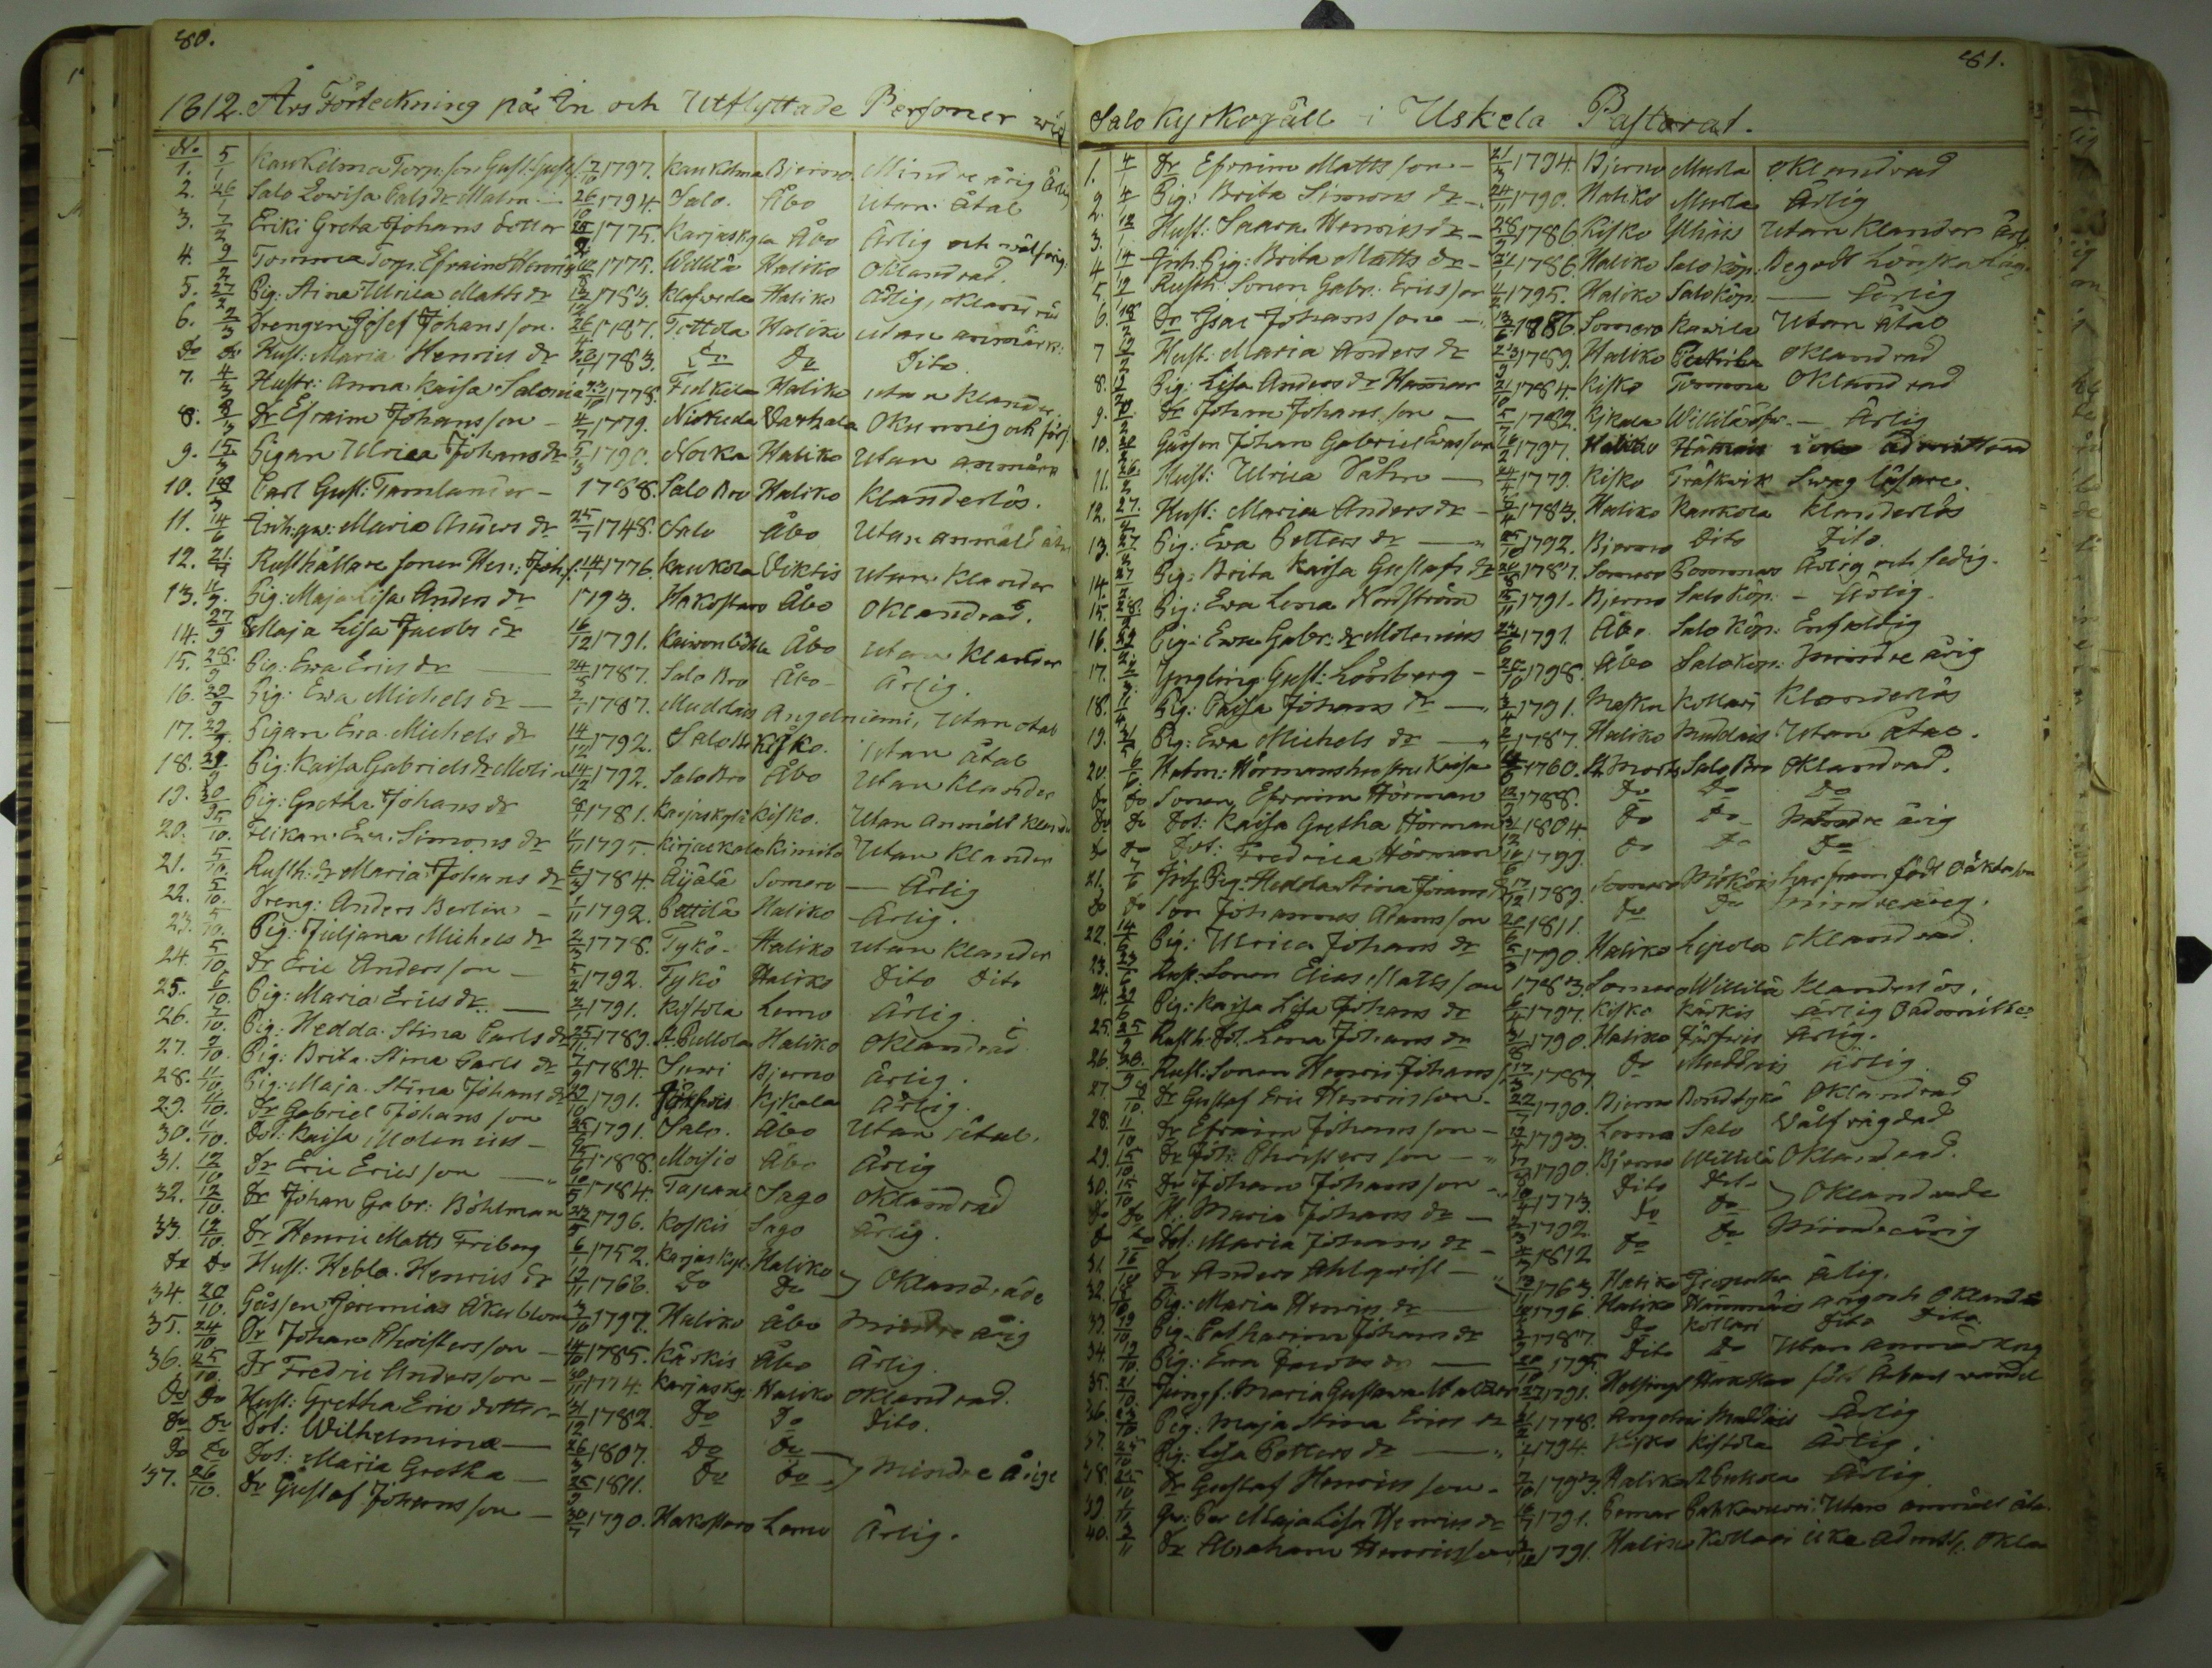 80.
1812. Års Förteckning på In och Utflyttade Personer wid
No
1. 5/1 Kankilma Torp: son Gust: 1797. Kankilma Bjerno Mindre årig Ärlig
2. 26/1 Salo Lowisa Malm 26/10 1794. Salo. Åbo Utan Åtal
3. 7/2 Eriki Greta Johans dotter 1775. Karjaskyla Åbo Ärlig och
4. 9/2 Tomma Torp. Efraim Henrics 1775. Willilä Haliko Oklandrad.
5. 27/2 Pig: Stina Ulrica Matts dr 1783. Haliko Ärlig, oklandrad
6. 2/3 Drengen Josef Johansson. 26/4 1787. Tottola Haliko utan anmärk:
Do Do Hust: Maria Henrics dr 1783. Do Do Dito.
7. 4/3 Hustr: Anna Kaisa Salonia 23/10 1778. Haliko utan klander
8. Dr Efraim Johansson - 4/7 1779. Okunnig och
9. 15/3 Pigan Ulrica Johans dr 5/3 1790. Nocka Haliko Utan anmärk
10. 18/3 Carl Gust: Tamlander - 1788. Salo Bro Haliko Klanderlös.
11. 14/6 Inh: qw: Maria Anders dr 25/7 1748. Salo Åbo Utan anmäld
12. 21/7 Rusthållare sonen Hen: Joh: 14/1 1776. Kaukola Viktis utan klander
13. 11/9. Pig: Maja Lisa Anders dr 1793. Hakostaro Åbo Oklandrad.
14. 27/9 Maja Lisa Jacobs dr 16/12 1791. Åbo Utan Klander
15. 28/9 Pig: Ewa Erics dr 24/5 1787. Salo Bro Åbo Ärlig.
16. 29/9 Pig: Ewa Michels dr 1787. Muddais Angelniemi, Utan otal
17. 29/9. Pigan Ewa Michels dr 14/12 1792. Salo Kisko. Utan åtal
18. 29/9 Pig: Kaisa Gabriels dr Molin 14/12 1792. Salo Bro Åbo Utan Klander
19. 30/9 Pig: Gretha Johans dr 1781. Karjaskylä Kisko. Utan Anmält Klander
20. /10. Ewa Simons dr 1795. Kirjackala Kimito Utan Klander
21. 5/10. Rusth: dr Maria Johans dr 1784. Äijälä Somero — Ärlig
22. 5/10. Dreng: Anders Berlin 1/11 1792. Pettilä Haliko Ärlig.
23. 5/10. Pig: Juljana Michels dr 2/3 1778. Tykö Haliko Utan Klander
24. 5/10. Dr Eric Andersson 5/2 1792. Tykö Haliko Dito Dito
25. 6/10. Pig: Maria Erics dr. 1791. Kistola Lemo Ärlig.
26. 7/10. Pig: Hedda Stina Carls dr 25/7 1789. Haliko Oklandrad
27. 9/10. Pig: Brita Stina Carls dr 7/9 1784. Bjerno Ärlig.
28. 11/10. Pig: Maja Stina Johans dr /10 1791. Kjkala Ärlig.
29. 11/10. Dr Gabriel Johansson 25/6 1791. Salo. Åbo Utan Åtal.
30. 11/10. Dot: Kaisa Molenius 1788. Moisio Åbo Ärlig
31. 12/10 Dr Eric Ericsson 10/5 1784. Tapani Sago Oklandrad
32. 12/10. Dr Johan Gabr: Böhlman 1796. Koskis Sago Ärlig.
33. 12/10. Dr Henric Matts Friberg 6/1 1752. Karjaskyl: Haliko
Do Do Hust: Hebla Henrics dr 1766. Do Do } Oklandrade
34. 20/10. Gåssen Jeremias Åkerblom 3/10 1797. Haliko Åbo Mindre årig
35. 24/10 Dr Johan Christersson 14/10 1785. Kärkis Åbo Ärlig.
36. 25/10. Dr Fredric Andersson 30/11 1774. Karjasky: Haliko Oklandrad.
Do Do Hust: Gretha Erics dotter 21/12 1782. Do Do Dito.
Do Do Dot: Wilhelmina 26/3 1807. Do Do
Do Do Dot: Maria Gretha 25/9 1811. Do Do } Mindre Årige
37. 26/10. Dr Gustaf Johansson 30/7 1790. Hakostaro Lemo Ärlig.
81.
Salo Kyrkogäll i Uskela Pastorat.
1. 4/1 Dr Efraim Mattsson 21/3 1794. Bjerno Murla Oklandrad
2. 4/1 Pig: Brita Simons dr 24/11 1790. Haliko Murla Ärlig
3. 12/1 Hust: Saara Henrics dr 28/9 1786 Kisko Utan Klander
4 14/1 Inh. Pig: Brita Matts dr 1786. Haliko Salo köp: Begått Lönskaläge
5. Rusth. Sonen Gabr: Ericsson 4/2 1795. Haliko Salo köp: — Ärlig
6. 18/2 Dr Isac Johansson 13/6 1786 Somero Kawila Utan Åtal
7 Hust: Maria Anders dr 23/9 1789. Haliko Oklandrad
8. Pig: Lisa Anders dr Hamar 21/10 1784. Kisko Tomma Oklandrad
9. Dr Johan Johansson 5/7 1782. Kjkala Willilä — Ärlig
10. Gåssen Johan Gabriel 1797. Haliko icke admitterad
11. 26/2 Hust: Ulrica 24/4 1779. Kisko Träskwik Swag läsare.
12. 27. Hust: Maria Anders dr 1783. Haliko Kaukola klanderlös
13. 27. Pig: Ewa Petters dr 25/10 1792. Bjerno Dito Dito.
14. 27 Pig: Brita Kaisa Gustafs dr 1787. Somero Pommar Ärlig och sedig.
15. 28. Pig: Ewa Lena Nordström 1791. Bjerno Salo köp: - Ärlig
16. Pig: Ewa Gabr: dr Molenius 1791. Åbo Salo köp: Enfaldig
17. Yngling Gust: Lönberg 25/10 1798. Åbo Salo köp: Mindre årig
18. Pig: Caisa Johans dr 3/4 1791. Masku Kollari Klanderlös
19. Pig: Ewa Michels dr 1787. Haliko Muddais Utan Åtal.
20. Hörmans hustru Kaisa 1760. St. Martens Salo Bro Oklandrad.
Do Do Sonen Efraim Hörman 1788. Do Do Do
Do Do Dot: Kaisa Gretha Hörman 1804 Do Do Mindre årig
Do Do Dot: Fredrica Hörman 1799. Do Do Do
21. 7/6 Inh: Pig: Hedda Stina Johans dr 17/12 1789. Somero har fram födt oäkta barn
Do Do Son Johannes Adamsson 1811. Do Do Mindreårig.
22. 14/6 Pig: Ulrica Johans dr 1790. Haliko Lipola Oklandrad.
23. Rust. Sonen Elias Mattsson 1783. Somero Willilä Klanderlös.
24. Pig: Kaisa Lisa Johans dr 1797. Kisko Kärkis Ärlig Oadmitter
25. 25/9 Rusth: Dot. Lena Johans dr 1790. Haliko Ärlig.
26. 30/9 Rust: Sonen Henric Johans 1787 Do Muddais ärlig
27. /10 Dr Gustaf Eric Henricsson 22/7 1790. Bjerno Oklandrad
28. 11/10 Dr Efraim Johansson 1793. Lemo Salo Wälfrägdad
29. 15/10 Dr Joh: Christersson 1790. Bjerno Willilä Oklandrad.
30. 15/10 Dr Johan Johansson 1773. Dito Dito
Do Do H. Maria Johans dr 1792. Do Do } Oklandrade
Do Do Dot: Maria Johans dr 1812 Do Do Mindreårig
31. Dr Anders Ahlqvist 1763. Haliko Ärlig.
32. 18/10 Pig: Maria Henrics dr 1796. Haliko ärlig och Oklandr
33. 19/10 Pig: Catharina Johans dr 1787. Do Kollari Dito Dito.
34. 19/10. Pig: Ewa Jacobs dr 1795. Dito Do Utan anmärkng
35. 21/10. Jungf: Maria Gustawa Walder 1791. Helsingf
36. Pig: Maja Stina Erics dr 1778. Angelni Muddais Ärlig
37. 25/10 Pig: Lisa Petters dr 1794. Kisko Kistola Ärlig.
38. 25/10 Dr Gustaf Henricsson 7/10 1793. Haliko Ärlig
39. Maja Lisa Henrics dr 1791. Pemar Utan anmäld
40. /11 Dr Abraham Henricsson 1791. Haliko Kollari icke admitt: Okla